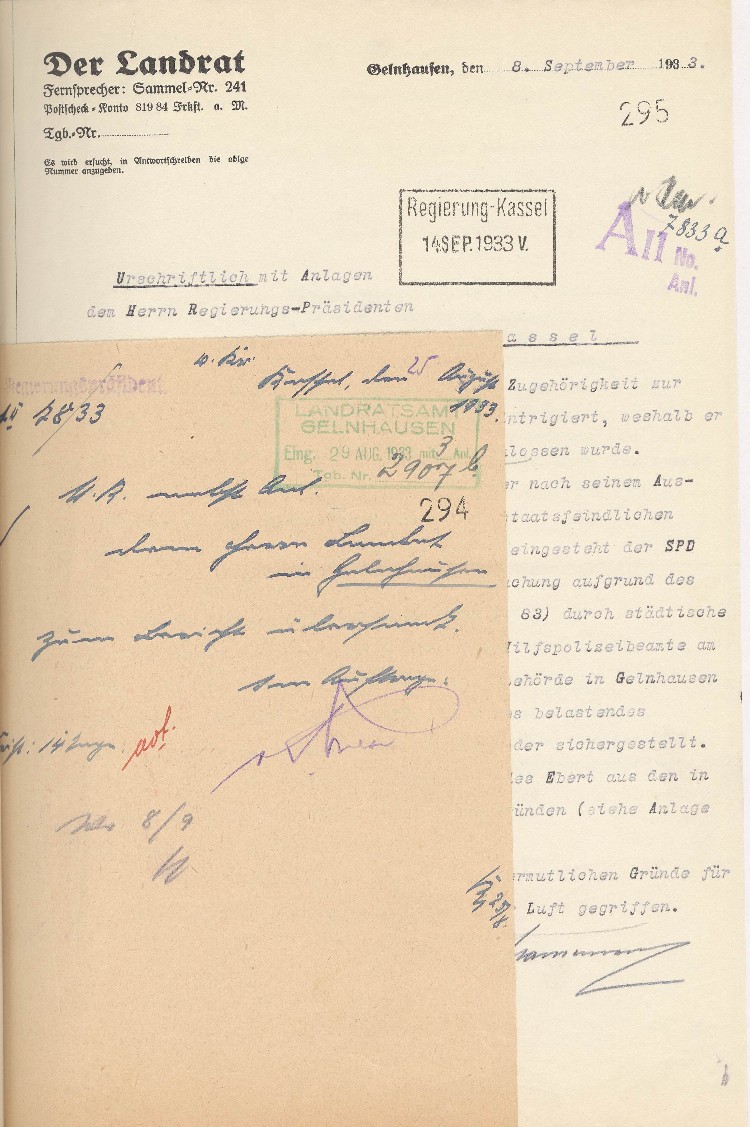 Der Landrat
Fernsprecher: Sammel-Nr. 241
Postscheck-Konto 819 84 Frkft. a. M.
Tgb.-Nr.
Es wird ersucht, in Antwortschreiben die obige
Nummer anzugeben.
Gelnhausen, den 8. September 1933.
295
Regierung-Kassel
14.SEP.1933 V.
7833 a
An
No.
Anl.
Urschriftlich mit Anlagen
dem Herrn Regierungs-Präsidenten
assel
Zugehörigkeit zur
ntrigiert, weshalb er
lossen wurde.
er nach seinem Aus-
staatsfeindlichen
eingesteht der SPD
chung aufgrund des
83) durch städtische
Hilfspolizeibeamte am
ehörde in Gelnhausen
s belastendes
der sichergestellt.
des Ebert aus den in
ründen (siehe Anlage
ermutlichen Gründe für
Luft gegriffen.
Regierungspräsident
28/33
Kassel, den 25 August
1933.
LANDRATSAMT
GELNHAUSEN
Eing. 29 AUG. 1933 mit 3 Anl.
Tgb. Nr. 2907 b
294
U. R. nebst Anl.
dem Herrn Landrat
in Gelnhausen
zum Bericht übersandt.
Im Auftrage:
Frist: 14 Tage.
8/9